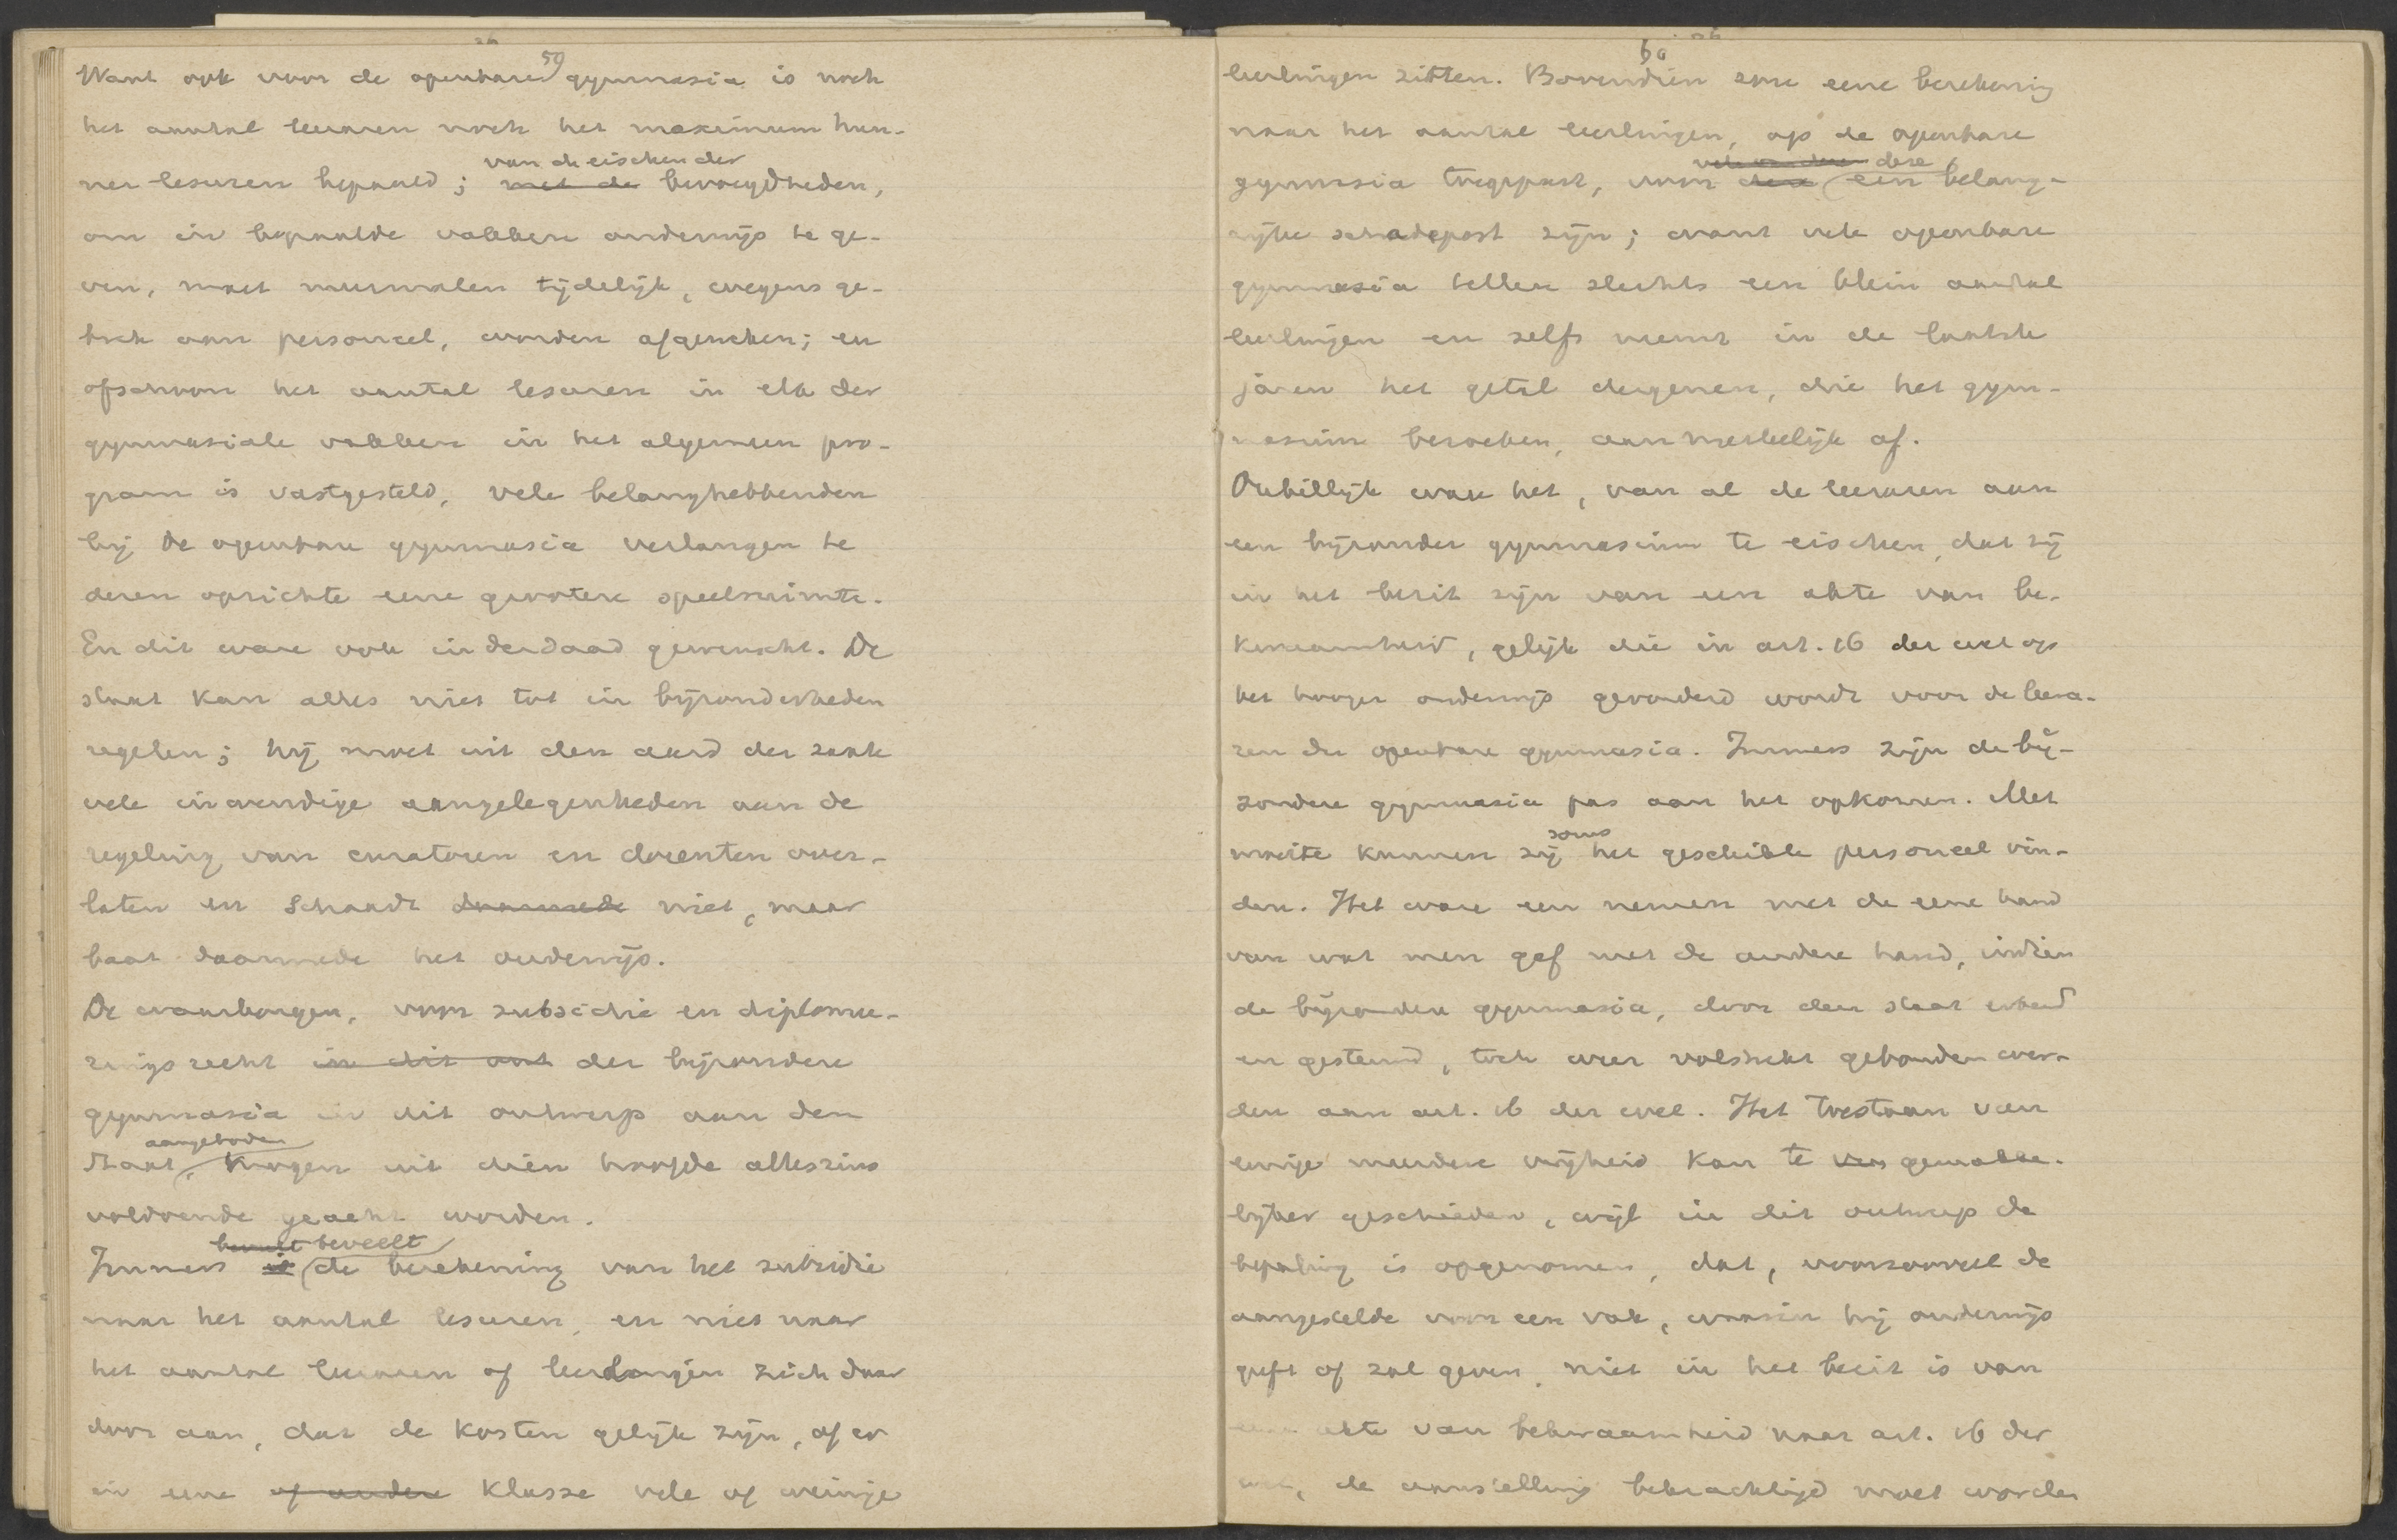 59
Want ook voor de openbare gymnasia is noch
het aantal leeraren noch het maximum hun-
ner lesuren bepaald; met de bevoegdheden,
van de eischen der
om in bepaalde vakken onderwijs te ge-
ven, moet meermalen tijdelijk, wegens ge-
brek aan personeel, worden afgeweken; en
ofschoon het aantal lesuren in elk der
gymnasiale vakken in het algemeen pro-
gram is vastgesteld, vele belanghebbenden
bij de openbare gymnasia verlangen te
dezen opzichte eene grootere speelruimte.
En dit ware ook inderdaad gewenscht. De
staat kan alles niet tot in bijzonderheden
regelen; hij moet uit den aard der zaak
vele inwendige aangelegenheden aan de
regeling van curatoren en docenten over-
laten en schaadt daarmede niet, maar
baat daarmede het onderwijs.
De waarborgen, voor subsidie en diplomee-
rings recht in dit ont der bijzondere
gymnasia in dit ontwerp aan den
aangeboden
Staat, mogen uit dien hoofde alleszins
voldoende geacht worden.
beveelt beveelt
Immers is de berekening van het subsidie
naar het aantal lesuren, en niet naar
het aantal leeraren of leerlingen zich daar
door aan, dat de kosten gelijk zijn, of er
in eene of andere klasse vele of weinige
60
leerlingen zitten. Bovendien zou eene berekening
naar het aantal leerlingen, op de openbare
vele van deze deze
gymnasia toegepast, voor deze een belang-
rijke schadepost zijn; want vele openbare
gymnasia tellen slechts een klein aantal
leerlingen en zelfs neemt in de laatste
jaren het getal dergenen, die het gym-
nasium bezoeken, aanmerkelijk af.
Onbillijk ware het, van al de leeraren aan
een bijzonder gymnasium te eischen, dat zij
in het bezit zijn van een akte van be-
kwaamheid, gelijk die in art. 16 der wet op
het hooger onderwijs gevorderd wordt voor de leera-
ren der openbare gymnasia. Immers zijn de bij-
zondere gymnasia pas aan het opkomen. Met
soms
moeite kunnen zij het geschikte personeel vin-
den. Het ware een nemen met de eene hand
van wat men gaf met de andere hand, indien
de bijzondere gymnasia, door den staat erkend
en gesteund, toch weer volstrekt gebonden wer-
den aan art. 16 der wet. Het toestaan van
eenige meerdere vrijheid kan te ges gemakke-
lijker geschieden, wijl in dit ontwerp de
bepaling is opgenomen, dat, voorzooveel de
aangestelde voor een vak, waarin hij onderwijs
geeft of zal geven, niet in het bezit is van
eene akte van bekwaamheid naar art. 16 der
wet, de aanstelling bekrachtigd moet worden